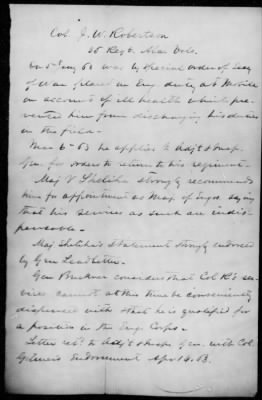 Col J. W. Robertson
35 Regt. Ala Vols.
on 5" Jany 63 was by Special order of Secy
of War placed on Eng. duty at Mobile
on account of ill health which pre-
vented him from discharging his duties
in the field.
Mar 6 - 63 he applies to Adjt & Insp.
Gen. for orders to return to his regiment.
Maj V Sheliha strongly recommends
him for appointment as Maj. of Engrs. saying
that his services as such are indis-
pensable.
Maj Sheliha's Statement strongly endorsed
by Gen Leadbetter.
Gen Buckner considers that Col R's ser-
vices cannot at this time be conveniently
dispensed with & that he is qualified for
a position in the Eng. Corps.
Letter retd. to Adjt & Insp. Gen. with Col
Gilmer's Endorsement Apr 14. 63.